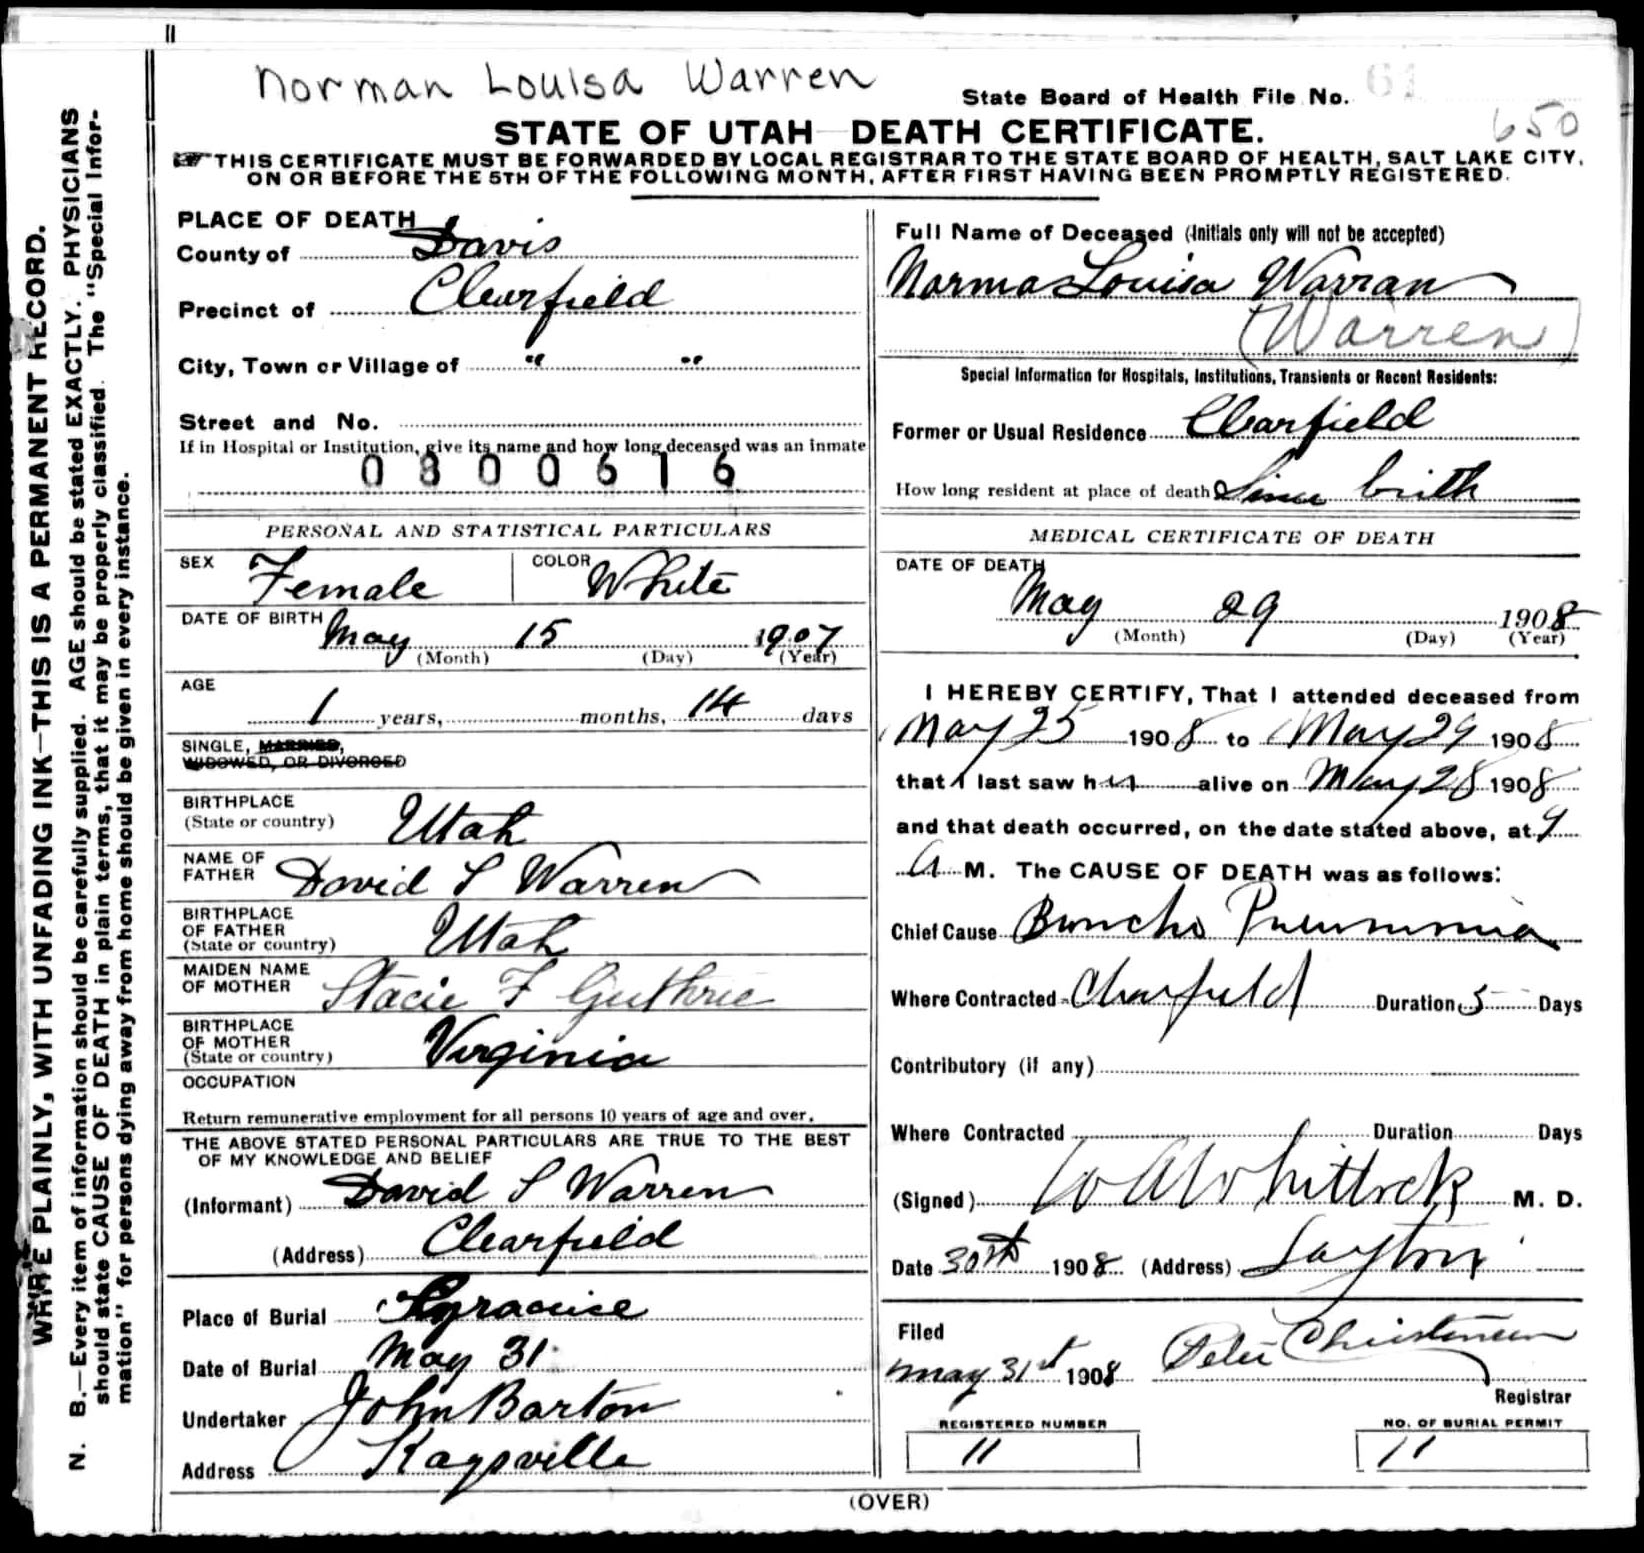 II
Norman Louisa Warren
State Board of Health File No. 61
650
STATE OF UTAH DEATH CERTIFICATE.
THIS CERTIFICATE MUST BE FORWARDED BY LOCAL REGISTRAR TO THE STATE BOARD OF HEALTH, SALT LAKE CITY,
ON OR BEFORE THE 5TH OF THE FOLLOWING MONTH, AFTER FIRST HAVING BEEN PROMPTLY REGISTERED.
WRITE PLAINLY, WITH UNFADING INK—THIS IS A PERMANENT RECORD.
N. B.—Every item of information should be carefully supplied. AGE should be stated EXACTLY. PHYSICIANS
should state CAUSE OF DEATH in plain terms, that it may be properly classified. The "Special Infor-
mation" for persons dying away from home should be given in every instance.
PLACE OF DEATH
County of Davis
Precinct of Clearfield
City, Town or Village of " "
Street and No.
If in Hospital or Institution, give its name and how long deceased was an inmate
0800616
PERSONAL AND STATISTICAL PARTICULARS
SEX Female COLOR White
DATE OF BIRTH May 15 1907
(Month) (Day) (Year)
AGE
1 years, months, 14 days
SINGLE, MARRIED,
WIDOWED, OR DIVORCED
BIRTHPLACE
(State or country) Utah
NAME OF
FATHER David S Warren
BIRTHPLACE
OF FATHER
(State or country) Utah
MAIDEN NAME
OF MOTHER Stacie F Guthrie
BIRTHPLACE
OF MOTHER
(State or country) Virginia
OCCUPATION
Return remunerative employment for all persons 10 years of age and over.
THE ABOVE STATED PERSONAL PARTICULARS ARE TRUE TO THE BEST
OF MY KNOWLEDGE AND BELIEF
(Informant) David S Warren
(Address) Clearfield
Place of Burial Syracuse
Date of Burial May 31
Undertaker John Barton
Address Kaysville
Full Name of Deceased (Initials only will not be accepted)
Norma Louisa Warran
(Warren)
Special Information for Hospitals, Institutions, Transients or Recent Residents:
Former or Usual Residence Clearfield
How long resident at place of death Since birth
MEDICAL CERTIFICATE OF DEATH
DATE OF DEATH
May 29 1908
(Month) (Day) (Year)
I HEREBY CERTIFY, That I attended deceased from
May 25 1908 to May 29 1908
that I last saw her alive on May 28 1908
and that death occurred, on the date stated above, at 9
A M. The CAUSE OF DEATH was as follows:
Chief Cause Broncho Pneumonia
Where Contracted Clearfield Duration 5 Days
Contributory (if any)
Where Contracted Duration Days
(Signed) W A Whitlock M. D.
Date 30th 1908 (Address) Layton
Filed
May 31st 1908 Peter Christensen
Registrar
REGISTERED NUMBER
11
NO. OF BURIAL PERMIT
11
(OVER)